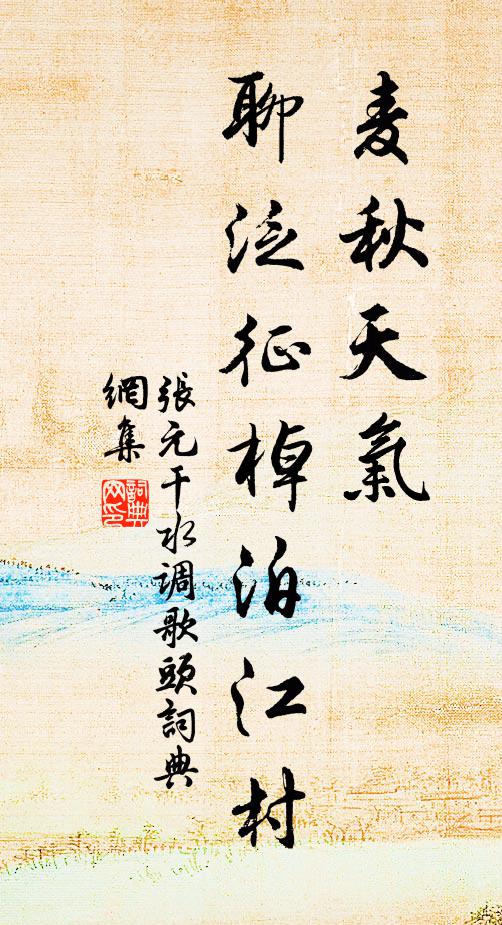 麦秋天氣
聊泛征棹泊江村
張元干水调歌頭詞典
網集
詞典
网印